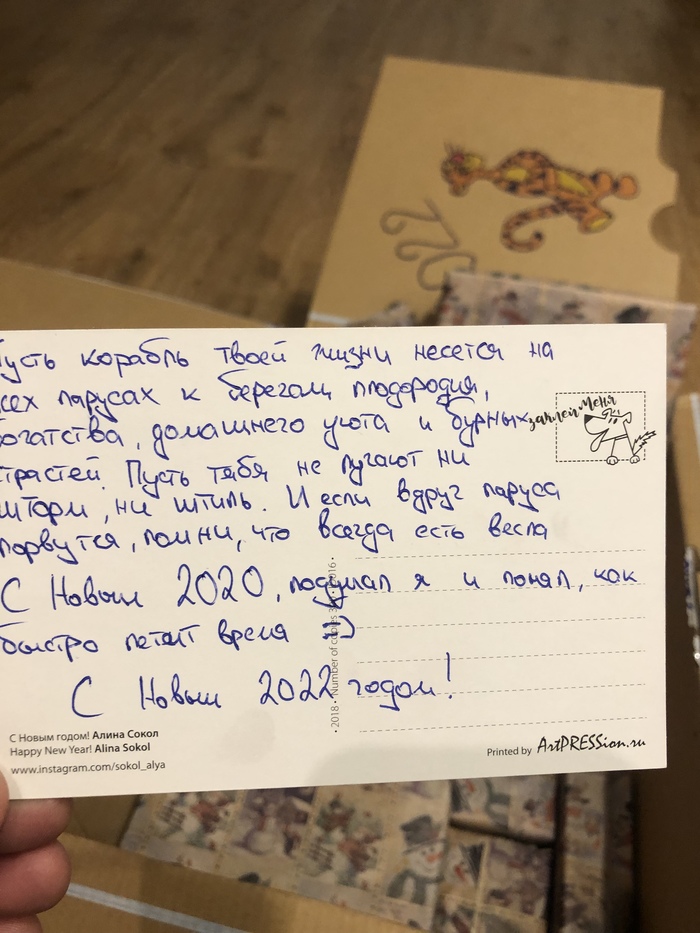 усть корабль твоей жизни несется на
сех парусах к берегам плодородия,
огатства, домашнего уюта и бурных
заклей меня
трастей. Пусть тебя не пугают ни
шторм, ни штиль. И если вдруг паруса
порвутся, помни, что всегда есть весла
С Новым 2020, подумал я и понял, как
быстро летит время :)
С Новым 2022 годом!
• 2018 • Number of copies
С Новым годом! Алина Сокол
Happy New Year! Alina Sokol
www.instagram.com/sokol_alya
Printed by ArtPRESSion.ru